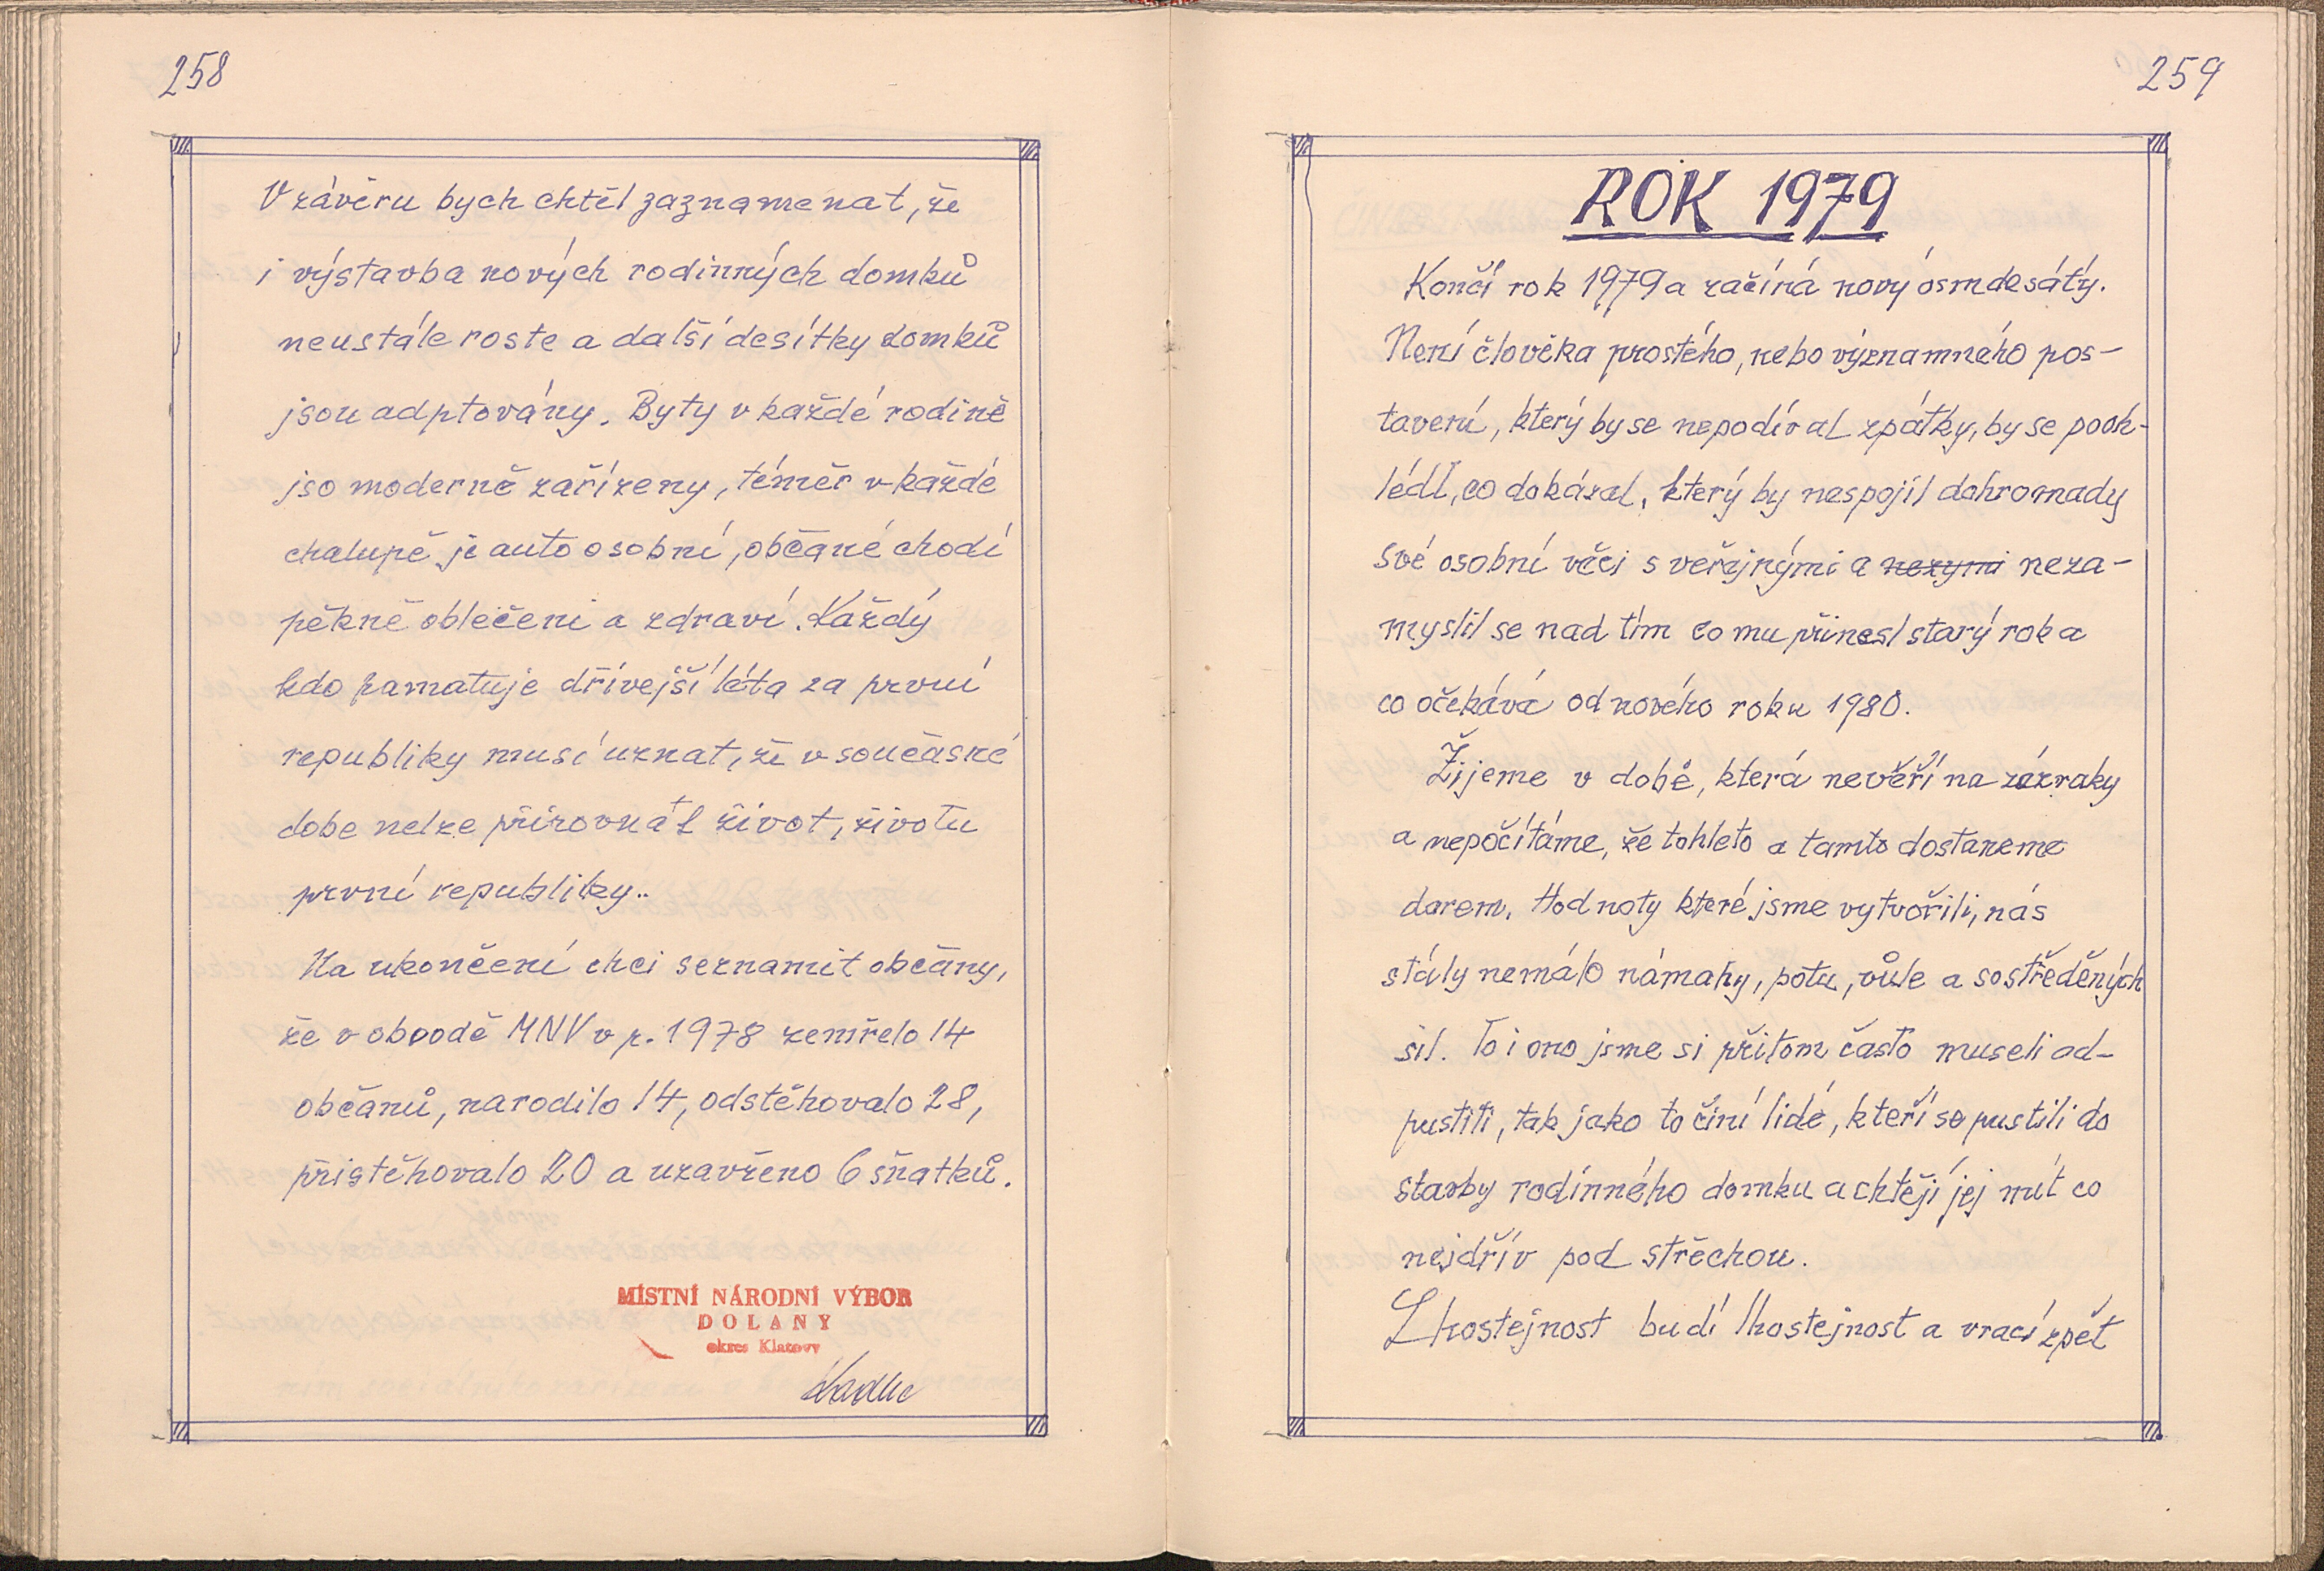 258
V závěru bych chtěl zaznamenat, že
i výstavba nových rodinných domků
neustále roste a další desítky domků
jsou adptovány. Byty v každé rodině
jso moderně zařízeny, téměř v každé
chalupě je auto osobní, občané chodí
pěkně oblečeni a zdraví. Každý
kdo pamatuje dřívejší léta za první
republiky musí uznat, že v současné
dobe nelze přirovnat život, životu
první republiky..
Na ukončení chci seznamit občany,
že v obvodě MNV v r. 1978 zemřelo 14
občanů, narodilo 14, odstěhovalo 28,
přistěhovalo 20 a uzavřeno 6 sňatků.
MÍSTNÍ NÁRODNÍ VÝBOR
DOLANY
okres Klatovy
259
ROK 1979
Končí rok 1979 a začíná nový ósmdesátý.
Není člověka prostého, nebo významného pos-
tavení, který by se nepodíval zpátky, by se pooh-
lédl, co dokázal, který by nespojil dohromady
své osobní věci s veřejnými a nezymi neza-
myslil se nad tím co mu přinesl starý rok a
co očekává od nového roku 1980.
Žijeme v době, která nevěří na zázraky
a nepočítáme, že tohleto a tamto dostaneme
darem. Hodnoty které jsme vytvořili, nás
stály nemálo námahy, potu, vůle a sostředěných
sil. To i ono jsme si přitom často museli od-
pustiti, tak jako to činí lidé, kteří se pustili do
stavby rodinného domku a chtějí jej mít co
nejdřív pod střechou.
Lhostejnost budí lhostejnost a vrací zpět